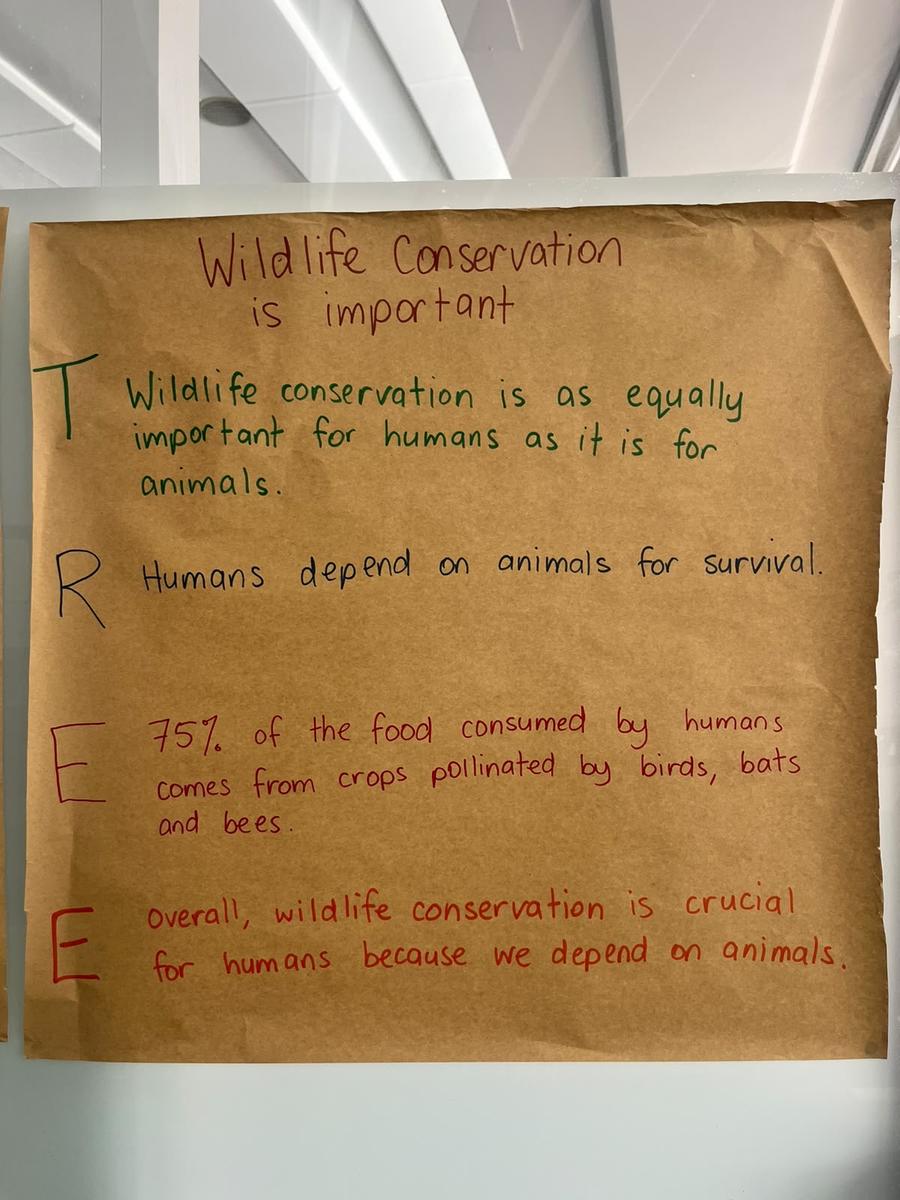 Wildlife Conservation
is important
T Wildlife conservation is as equally
important for humans as it is for
animals.
R Humans depend on animals for survival.
E 75% of the food consumed by humans
comes from crops pollinated by birds, bats
and bees.
E Overall, wildlife conservation is crucial
for humans because we depend on animals.